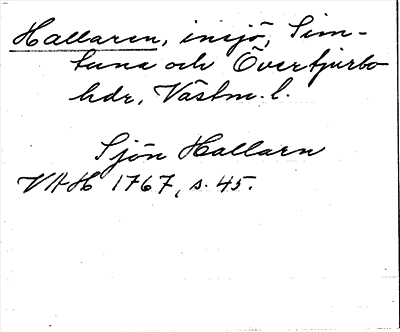 Hallaren, insjö, Sim-
tuna och Övertjurbo
hdr, Västm. l.
Sjön Hallarn
VAH 1767, s. 45.